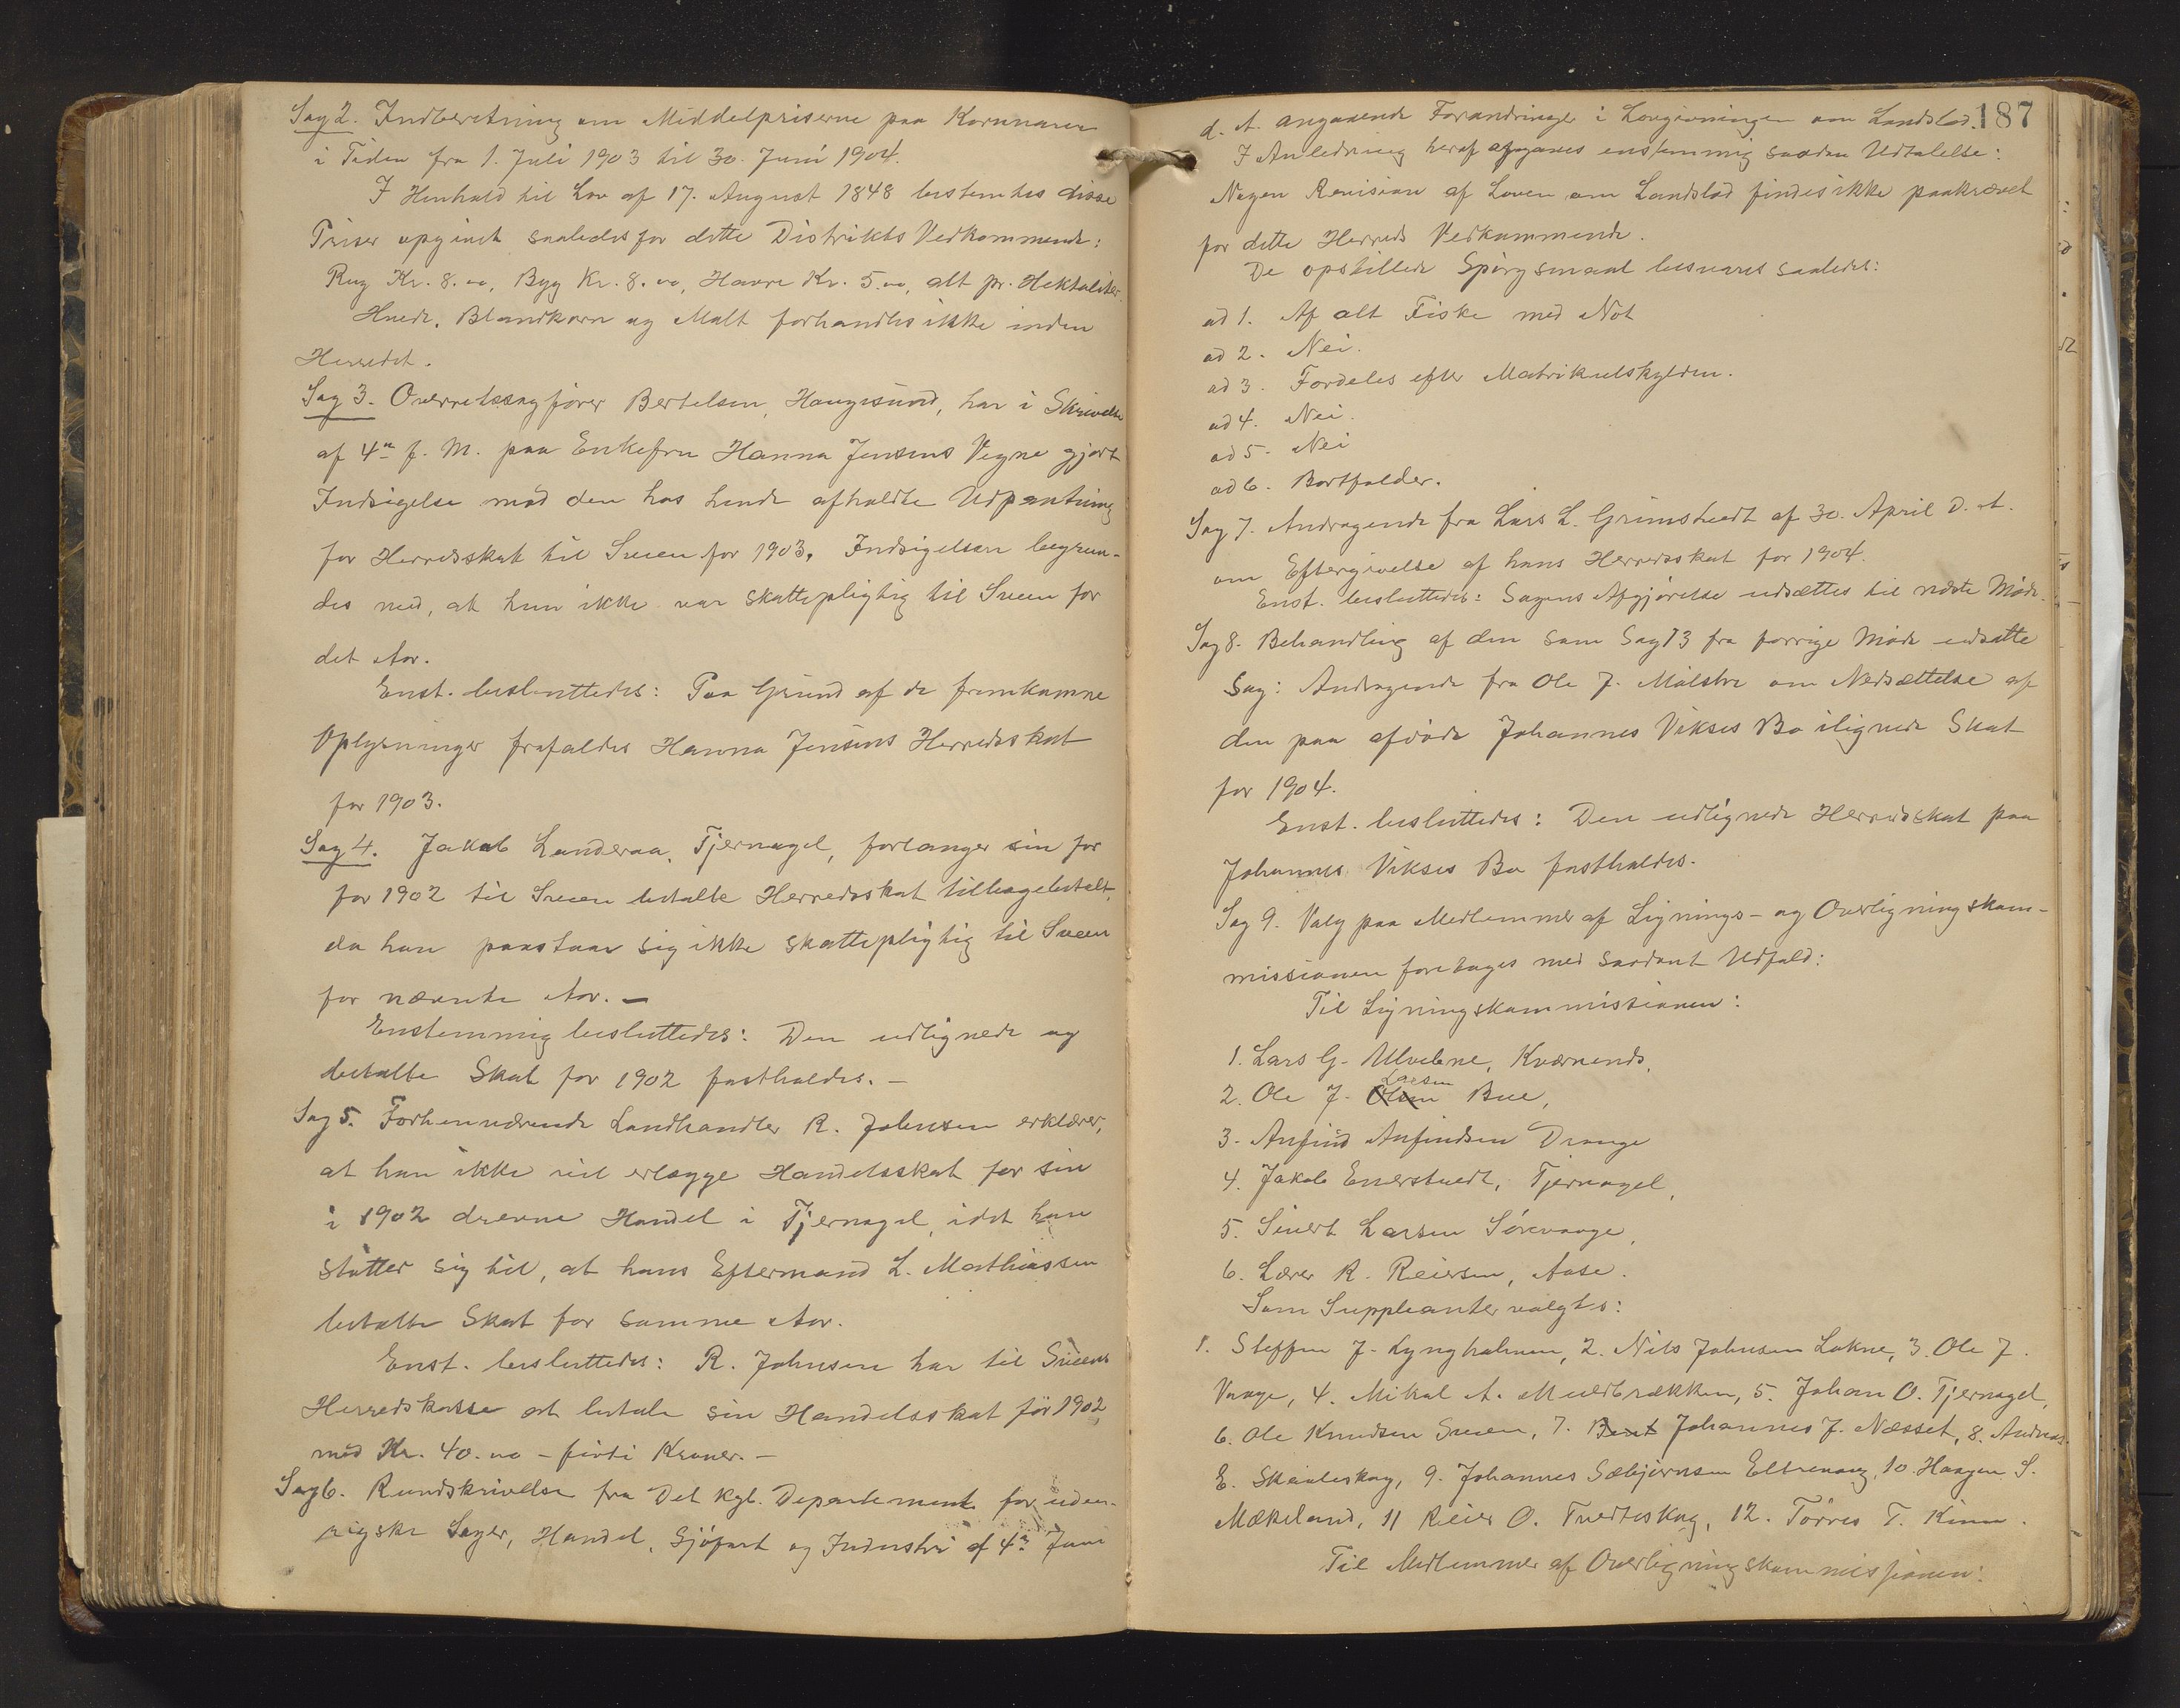 Sag 2. Indberetning om Middelpriserne paa Kornvarer
i Tiden fra 1. Juli 1903 til 30. Juni 1904.
I Henhold til Lov af 17. August 1848 bestemtes disse
Priser opgivet saaledes for dette Distrikts Vedkommende:
Rug Kr. 8.00, Byg Kr. 8.00, Havre Kr. 5.00, alt pr. Hektoliter.
Hvede, Blandkorn og Malt forhandles ikke inden
Herredet.
Sag 3. Overretssagfører Bertelsen, Haugesund, har i Skrivelse
af 4de f. M. paa Enkefru Hanna Jensens Vegne gjort
Indsigelse mod den hos hende afholdte Udpantning
for Herredsskat til Sveen for 1903. Indsigelsen begrun-
des med, at hun ikke var skattepligtig til Sveen for
det Aar.
Enst. besluttedes: Paa Grund af de fremkomne
Oplysninger frafaldes Hanna Jensens Herredsskat
for 1903.
Sag 4. Jakob Landeraa, Tjernagel, forlanger sin for
for 1902 til Sveen betalte Herredsskat tilbagebetalt,
da han paastaar sig ikke skattepligtig til Sveen
for nævnte Aar. –
Enstemmig besluttedes: Den udlignede og
betalte Skat for 1902 fastholdes. –
Sag 5. Forhenværende Landhandler R. Johnsen erklærer,
at han ikke vil erlægge Handelsskat for sin
i 1902 drevne Handel i Tjernagel, idet han
støtter sig til, at hans Eftermand L. Mathiassen
betalte Skat for samme Aar.
Enst. besluttedes: R. Johnsen har til Sveens
Herredskasse at betale sin Handelsskat for 1902
med Kr. 40.00 – firti Kroner. –
Sag 6. Rundskrivelse fra Det kgl. Departement for uden-
rigske Sager, Handel, Sjøfart og Industri af 4de Juni
187
d. A. angaaende Forandringer i Lovgivningen om Landslod.
I Anledning heraf afgaves enstemmig saadan Udtalelse:
Nogen Revision af Loven om Landslod findes ikke paakrævet
for dette Herreds Vedkommende.
De opstillede Spørgsmaal besvares saaledes:
ad 1. Af alt Fiske med Not
ad 2. Nei.
ad 3. Fordeles efter Matrikulskylden.
ad 4. Nei.
ad 5. Nei
ad 6. Bortfalder.
Sag 7. Andragende fra Lars L. Grimstvedt af 30. April d. A.
om Eftergivelse af hans Herredsskat for 1904.
Enst. besluttedes: Sagens Afgjørelse udsættes til næste Møde.
Sag 8. Behandling af den som Sag 13 fra forrige Møde udsatte
Sag: Andragende fra Ole J. Målstre om Nedsættelse af
den paa afdøde Johannes Vikses Bo ilignede Skat
for 1904.
Enst. besluttedes: Den udlignede Herredsskat paa
Johannes Vikses Bo fastholdes.
Sag 9. Valg paa Medlemmer af Lignings- og Overligningskom-
missionen foretoges med saadant Udfald:
Til Ligningskommissionen:
1. Lars G. Ulveløne, Kværnends,
Larsen
2. Ole J. Olsen Bue,
3. Anfind Anfindsen Drange
4. Jakob Emerstvedt, Tjernagel,
5. Sivert Larsen Sørevaage,
6. Lærer R. Reiersen, Aase.
Som Suppleanter valgtes:
1. Steffen J. Lyngholmen, 2. Nils Johnsen Lokne, 3. Ole J.
Vaage, 4. Mikal A. Muldbrækken, 5. Johan O. Tjernagel,
6. Ole Knudsen Sveen, 7. Bent Johannes J. Næsset, 8. Andreas
E. Skeieskog, 9. Johannes Sæbjørnsen Eltrevaag, 10. Haagen S.
Mækeland, 11 Reier O. Tveiteskog, 12. Tørres T. Kinn.
Til Medlemmer af Overligningskommissionen: